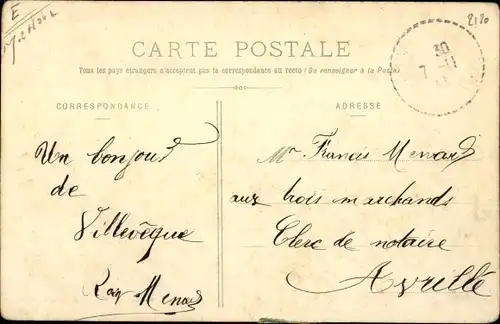 E
2180
30
7 - 11
CARTE POSTALE
Tous les pays étrangers n'acceptent pas la correspondance au recto (Se renseigner à la Poste)
CORRESPONDANCE
ADRESSE
Un bonjour
de
Villevêque
Menard
Mr Francis Menard
aux trois marchands
Clerc de notaire
Avrillé